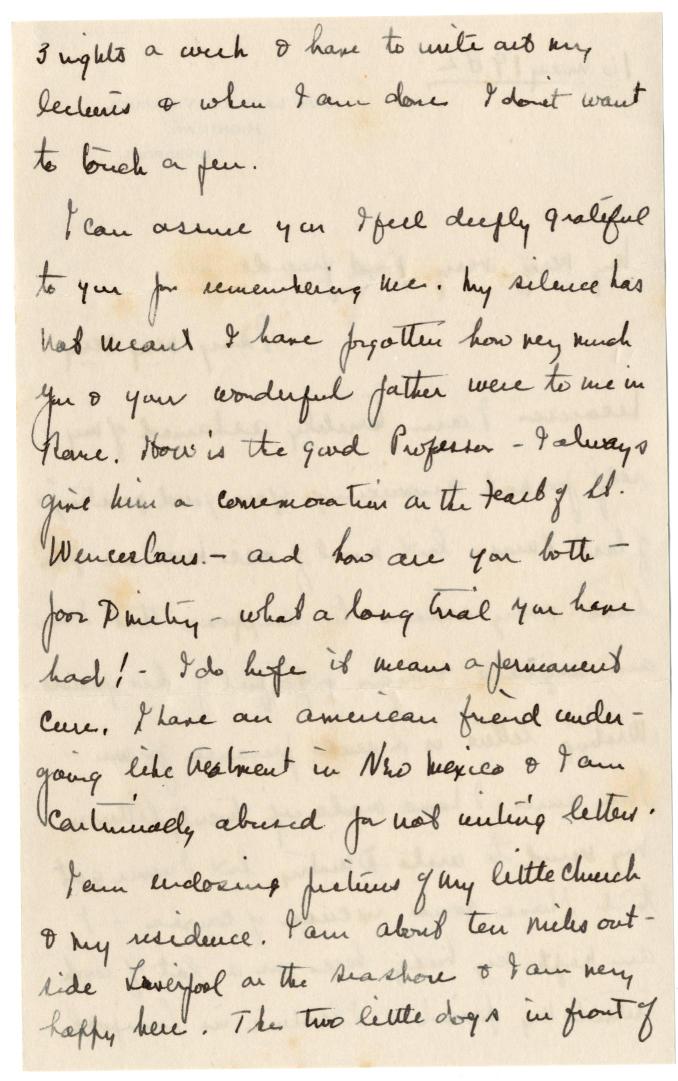 3 nights a week & have to write out my
lectures & when I am done I don't want
to touch a pen.
I can assure you I feel deeply grateful
to you for remembering me. My silence has
not meant I have forgotten how very much
you & your wonderful father were to me in
Rome. How is the good Professor – I always
give him a comemoration on the Feast of St.
Wenceslaus. – and how are you both –
poor Dmitry – what a long trial you have
had! – I do hope it means a permanent
cure. I have an american friend under-
going like treatment in New Mexico & I am
continually abused for not writing letters.
I am enclosing pictures of my little church
& my residence. I am about ten miles out-
side Liverpool on the seashore & I am very
happy here. The two little dogs in front of